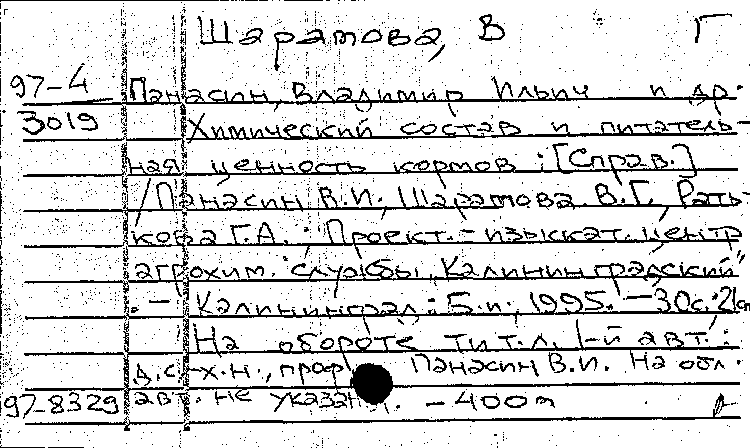 Шаратова, В Г
97-4 Панасин, Владимир Ильич и др.
3019 Химический состав и питатель-
ная ценность кормов : [Справ.]
/Панасин В.И., Шаратова В.Г., Рать-
кова Г.А. ; Проект.-изыскат. центр
агрохим. службы "Калининградский"
. — Калининград : Б.и., 1995. — 30с.; 21см
На обороте тит.л. 1-й авт.:
д.с.-х.н., проф. Панасин В.И. На обл.
97-8329 авт. не указаны. - 400